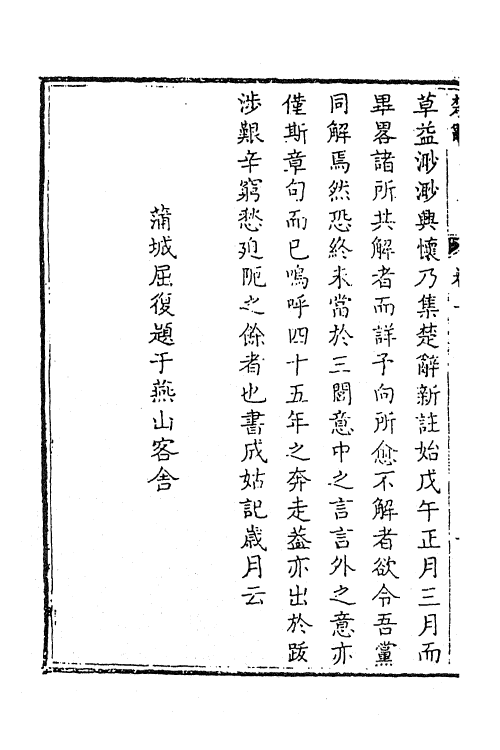 草益渺渺興懷乃集楚辭新註始戊午正月三月而
畢畧諸所共解者而詳予向所愈不解者欲令吾黨
同解焉然恐終未當於三閭意中之言言外之意亦
僅斯章句而已嗚呼四十五年之奔走葢亦出於跋
涉艱辛窮愁廹阨之餘者也書成姑記歲月云
蒲城屈復題于燕山客舍